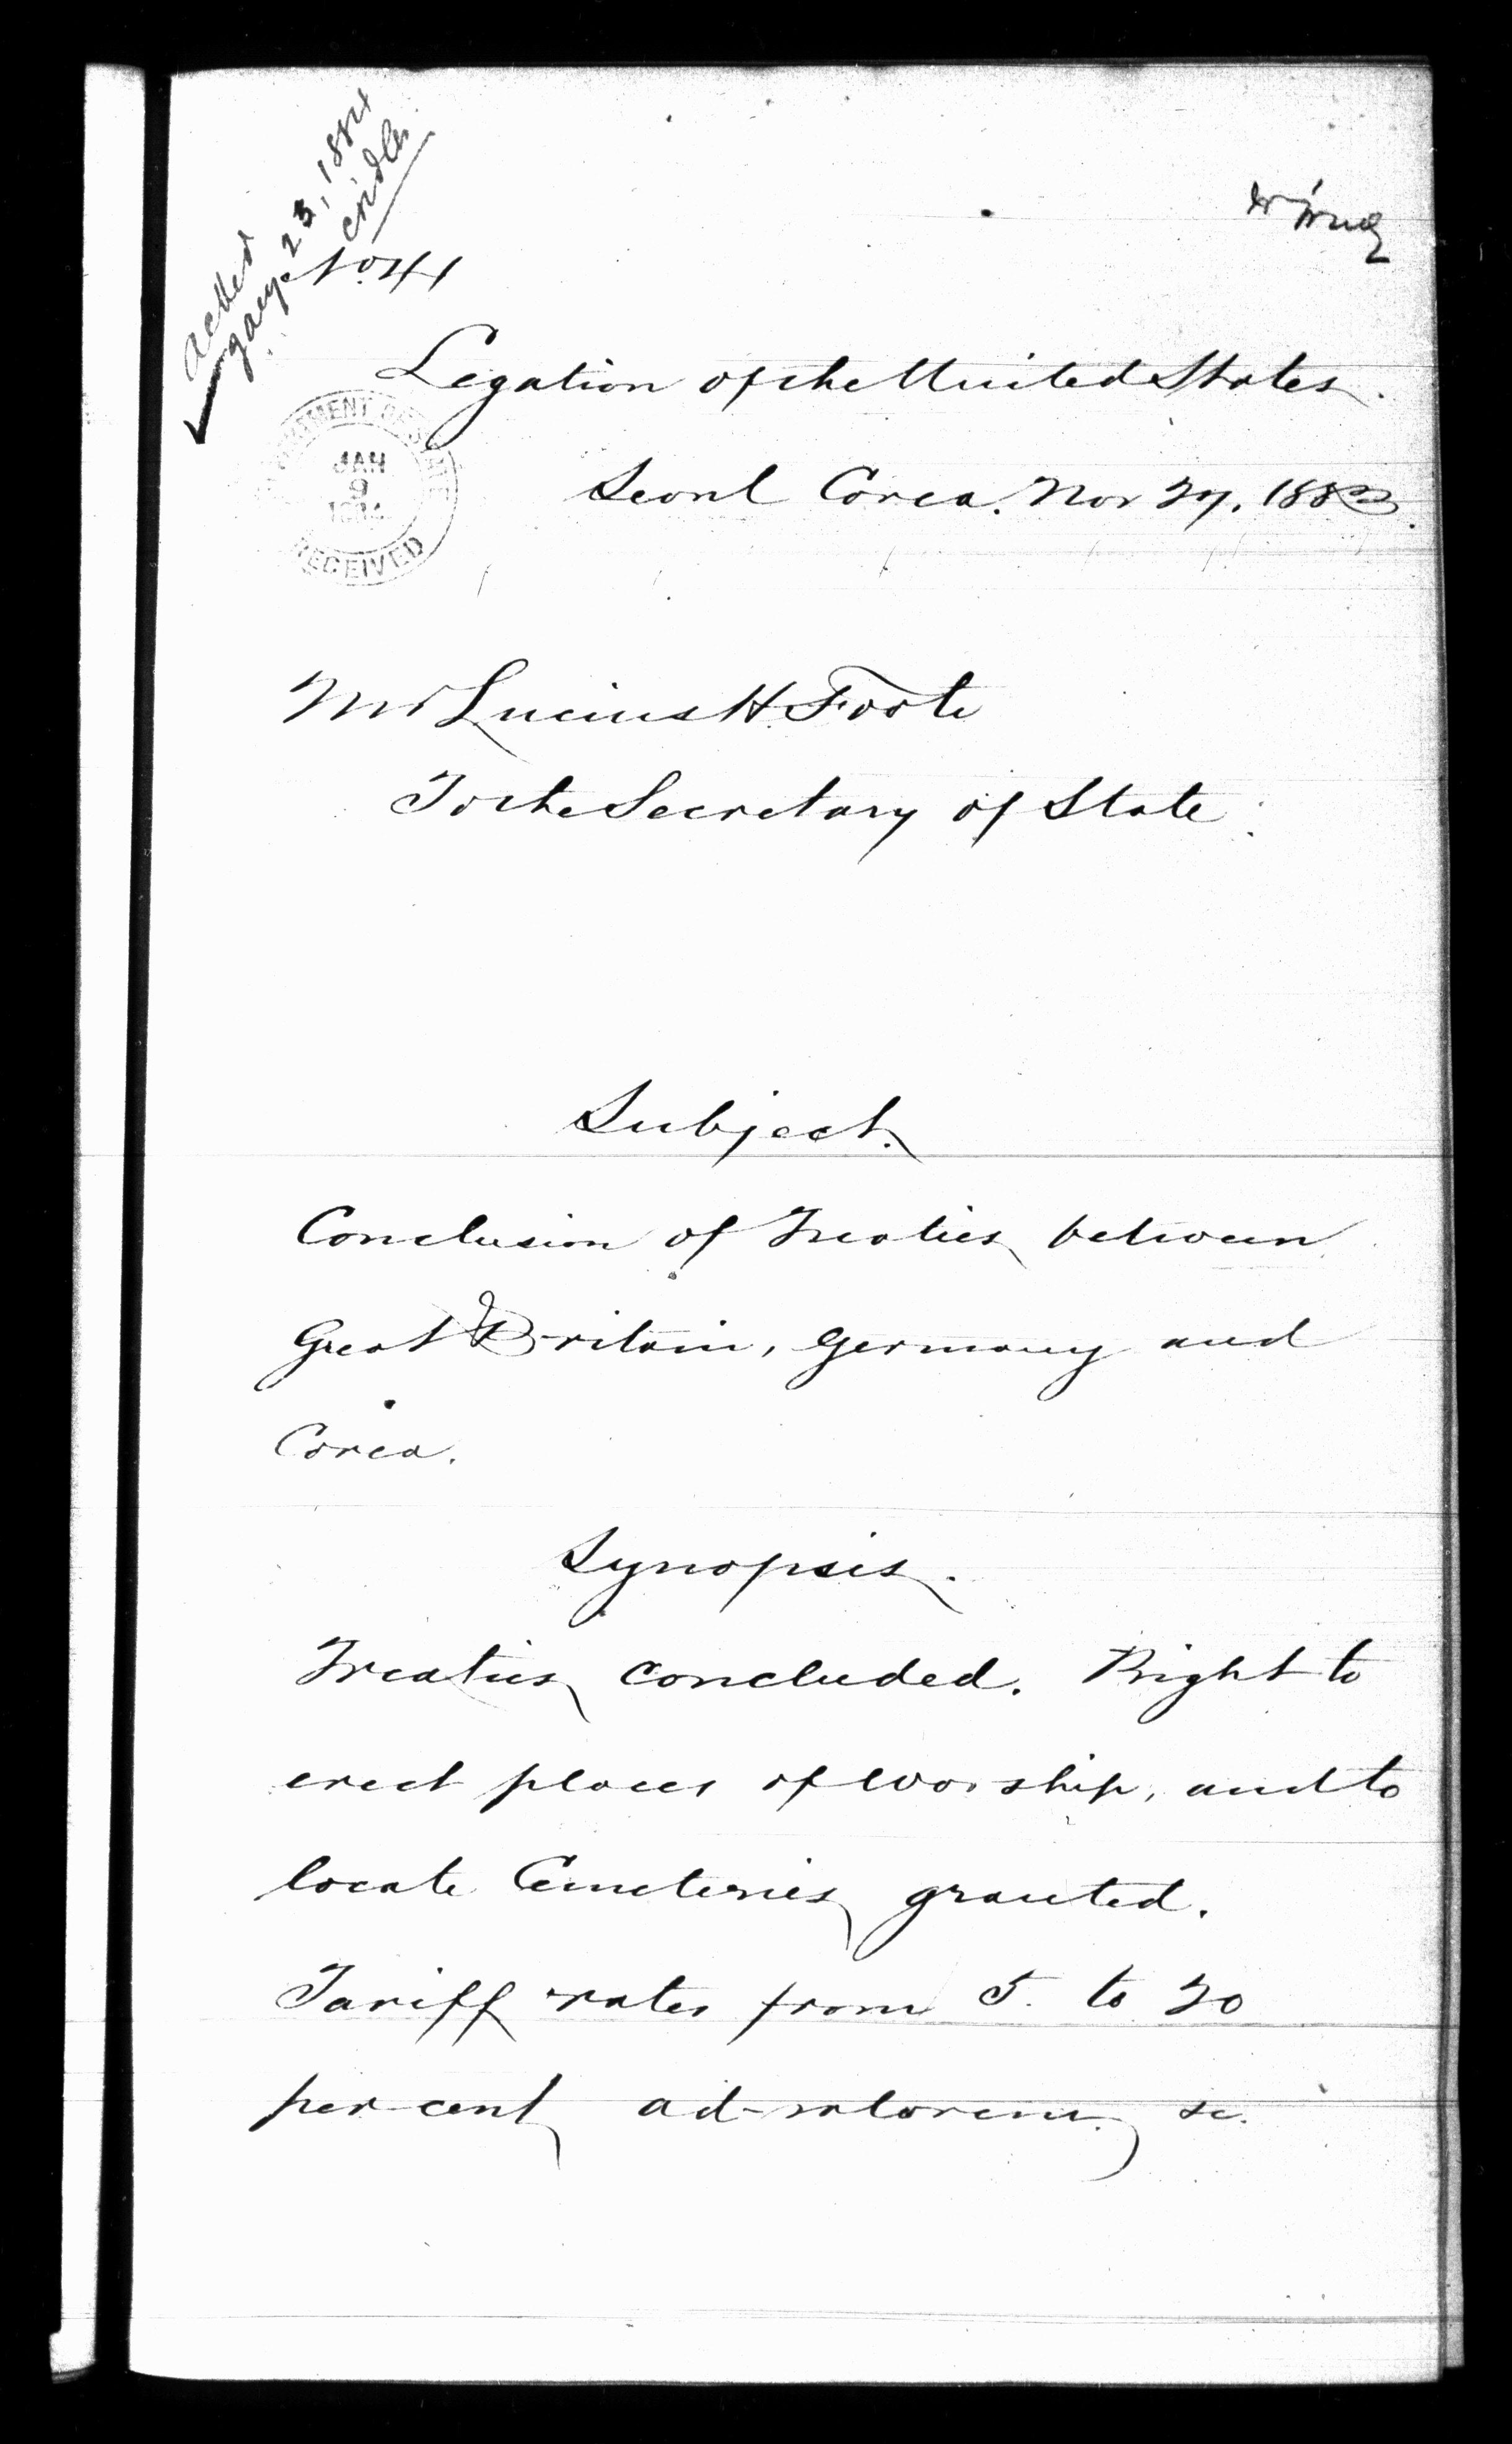 Acked
Jany 23, 1884
Cridler
No 41
Legation of the United States.
DEPARTMENT OF STATE
JAN
9
1884
RECEIVED
Seoul Corea. Nov 27, 1883.
Mr Lucius H Foote
To the Secretary of State.
Subject.
Conclusion of Treaties between
Great Britain, Germany and
Corea.
Synopsis.
Treaties concluded. Right to
erect places of worship, and to
locate Cemeteries granted.
Tariff rates from 5. to 20
per-cent ad-valorem. &c.